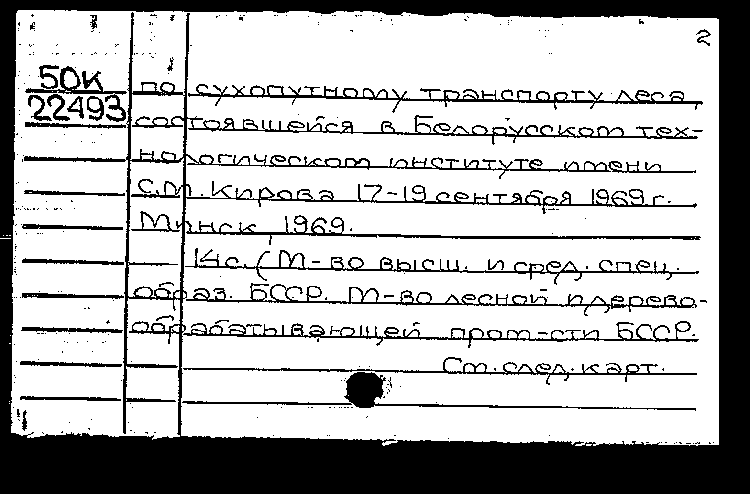 2
50К
22493
по сухопутному транспорту леса,
состоявшейся в Белорусском тех-
нологическом институте имени
С.М. Кирова 17-19 сентября 1969 г.
Минск, 1969.
14с. (М-во высш. и сред. спец.
образ. БССР. М-во лесной и дерево-
обрабатывающей пром-сти БССР.
См. след. карт.